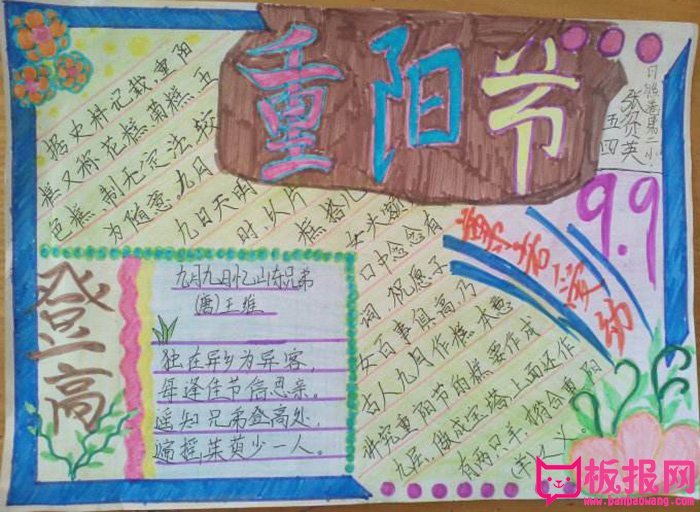 重阳节
五四
9.9
据史料记载,重阳
糕又称花糕菊糕五
色糕,制无定法,较
为随意。九月
九日天明
时,以片
糕搭儿
女头额
口中念念有
词,祝愿子
女百事俱高,乃
古人九月作糕本意
讲究重阳节的糕要作成
九层,宝塔,上面还作
有两只羊,合重阳
(羊)之义。
尊老爱幼
登高
九月九日忆山东兄弟
(唐)王维
独在异乡为异客,
每逢佳节倍思亲。
遥知兄弟登高处,
遍插茱萸少一人。
板报网
www.banbaowang.com